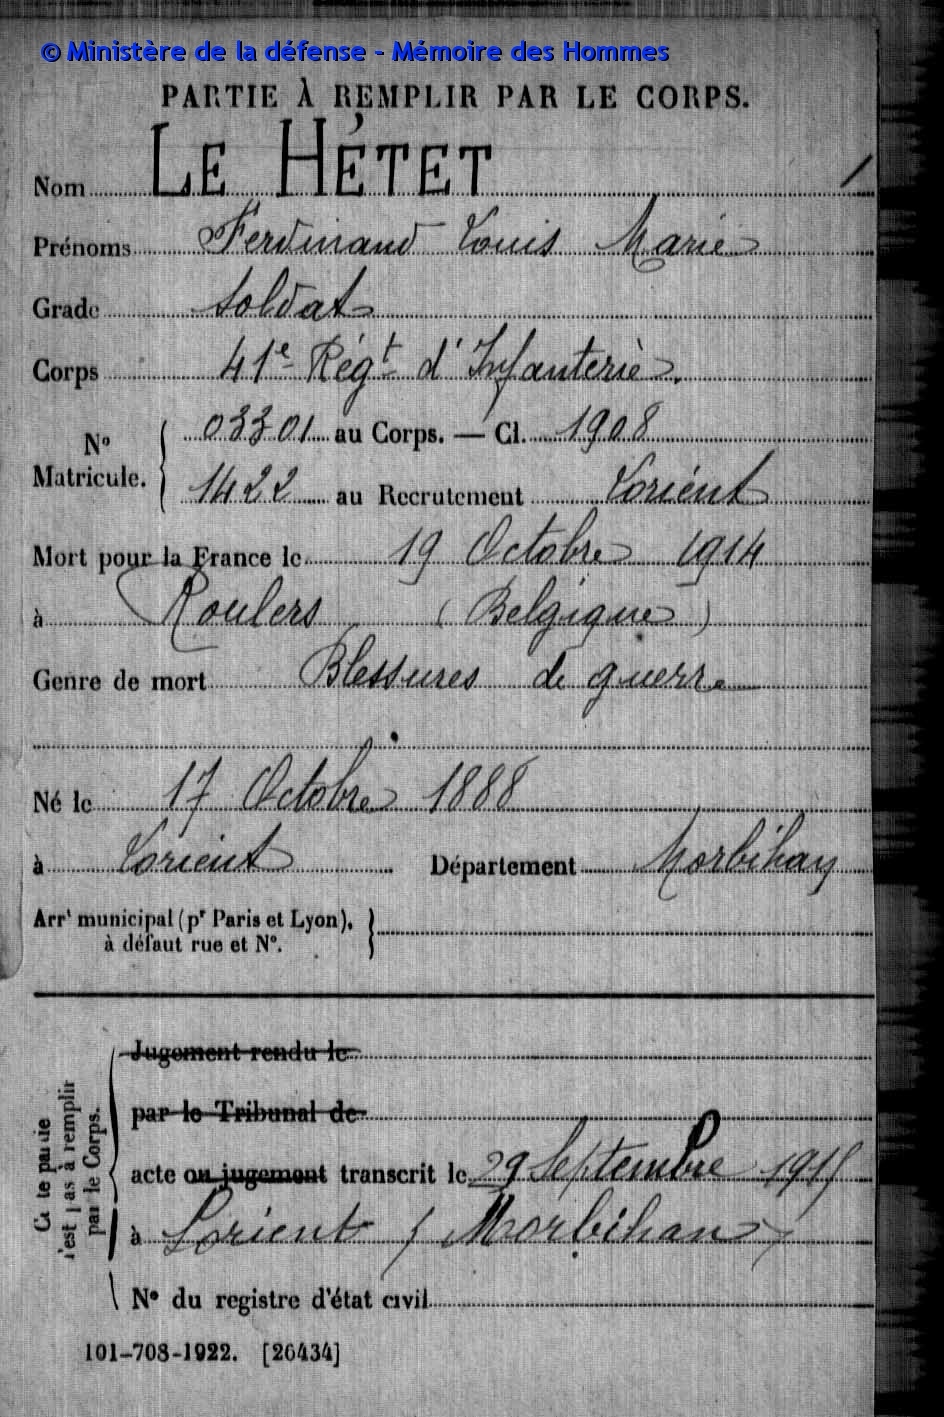 © Ministère de la défense - Mémoire des Hommes
PARTIE À REMPLIR PAR LE CORPS.
Nom LE HÉTET
Prénoms Ferdinand Louis Marie
Grade soldat
Corps 41e Régt d'Infanterie.
N° Matricule. 03301 au Corps. — Cl. 1908
1422 au Recrutement Lorient
Mort pour la France le 19 Octobre 1914
à Roulers (Belgique)
Genre de mort Blessures de guerre
Né le 17 Octobre 1888
à Lorient Département Morbihan
Arrt municipal (pr Paris et Lyon),
à défaut rue et N°.
Cette partie
n'est pas à remplir
par le Corps.
Jugement rendu le
par le Tribunal de
acte ou jugement transcrit le 29 Septembre 1915
à Lorient (Morbihan)
N° du registre d'état civil
101-708-1922. [26434]